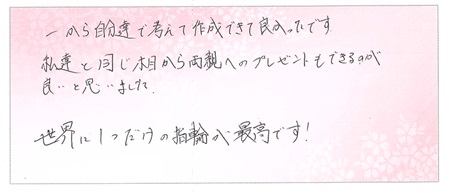 一から自分達で考えて作成できて良かったです
私達と同じ木目から両親へのプレゼントもできるのが
良いと思いました。
世界に1つだけの指輪が最高です!